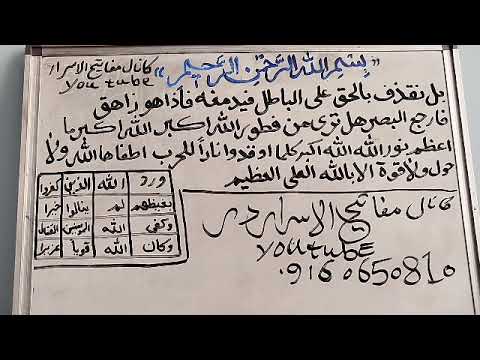 "بسم الله الرحمن الرحيم" كانال مفاتيح الاسرار
you tube
بل نقذف بالحق على الباطل فيدمغه فأذا هو زاهق
فارجع البصر هل ترى من فطور الله اكبر الله اكبر ما
اعظم نور الله الله اكبر كلما اوقدوا ناراً للحرب اطفاها الله ولا
حول ولا قوة الا بالله العلي العظيم
ورد الله الذين كفروا
بغيظهم لم ينالوا خيرا
وكفى الله المومنين القتال
وكان الله قويا عزيزا
كانال مفاتيح الاسرار در
YOUTUBE
09160650810